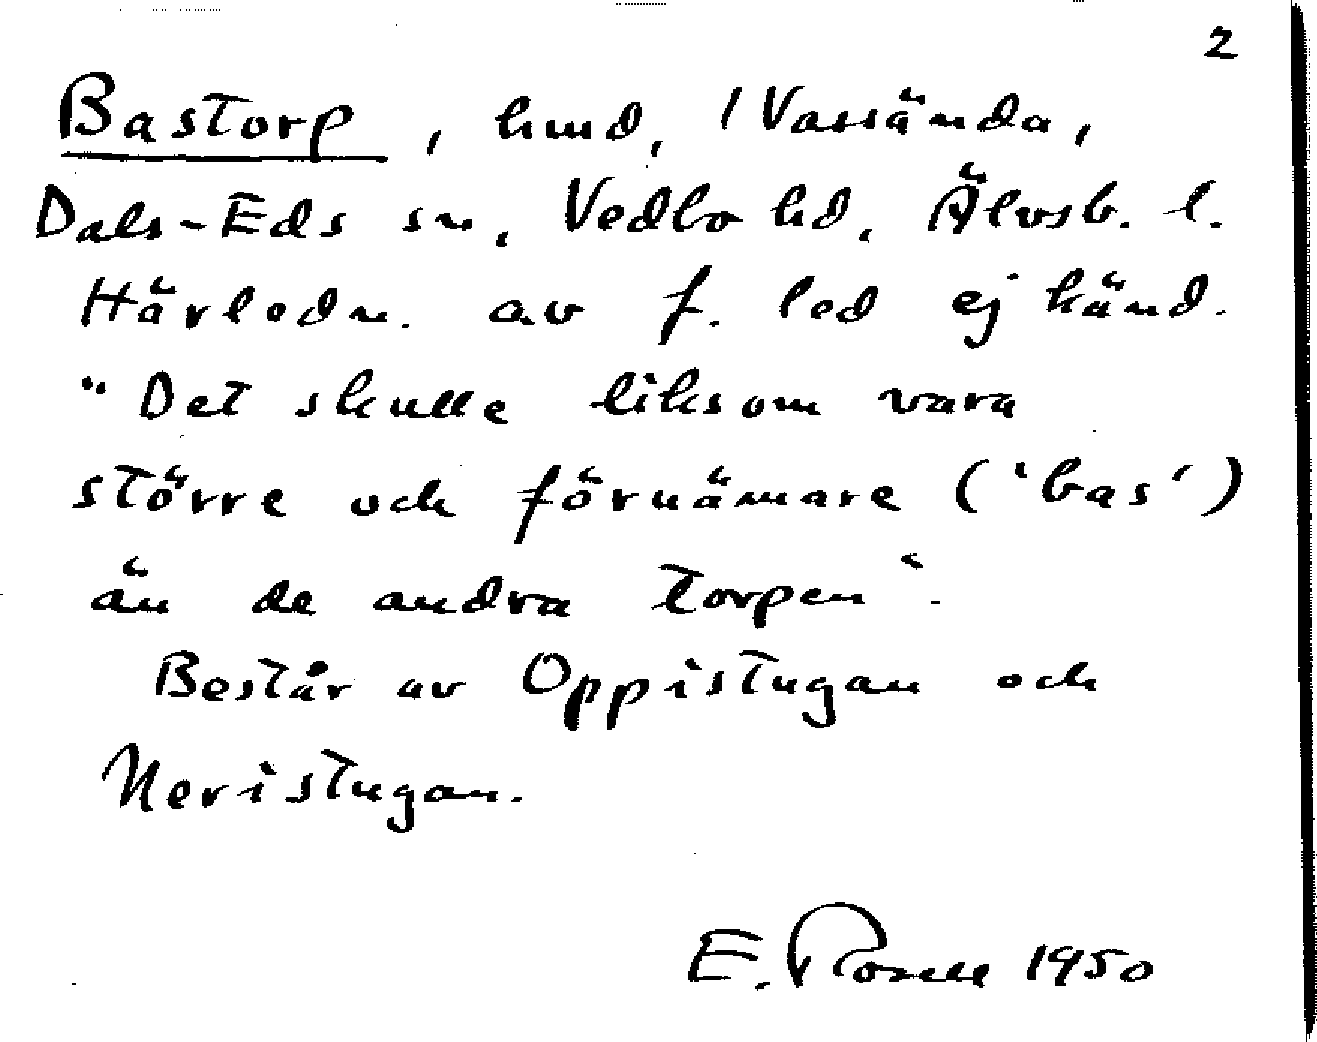 2
Bastorp, hmd, 1 Vassända,
Dals-Eds sn, Vedbo hd, Älvsb. l.
Härledn. av f. led ej känd.
"Det skulle liksom vara
större och förnämare ('bas')
än de andra torpen".
Består av Oppistugan och
Neristugan.
E. Rosell 1950